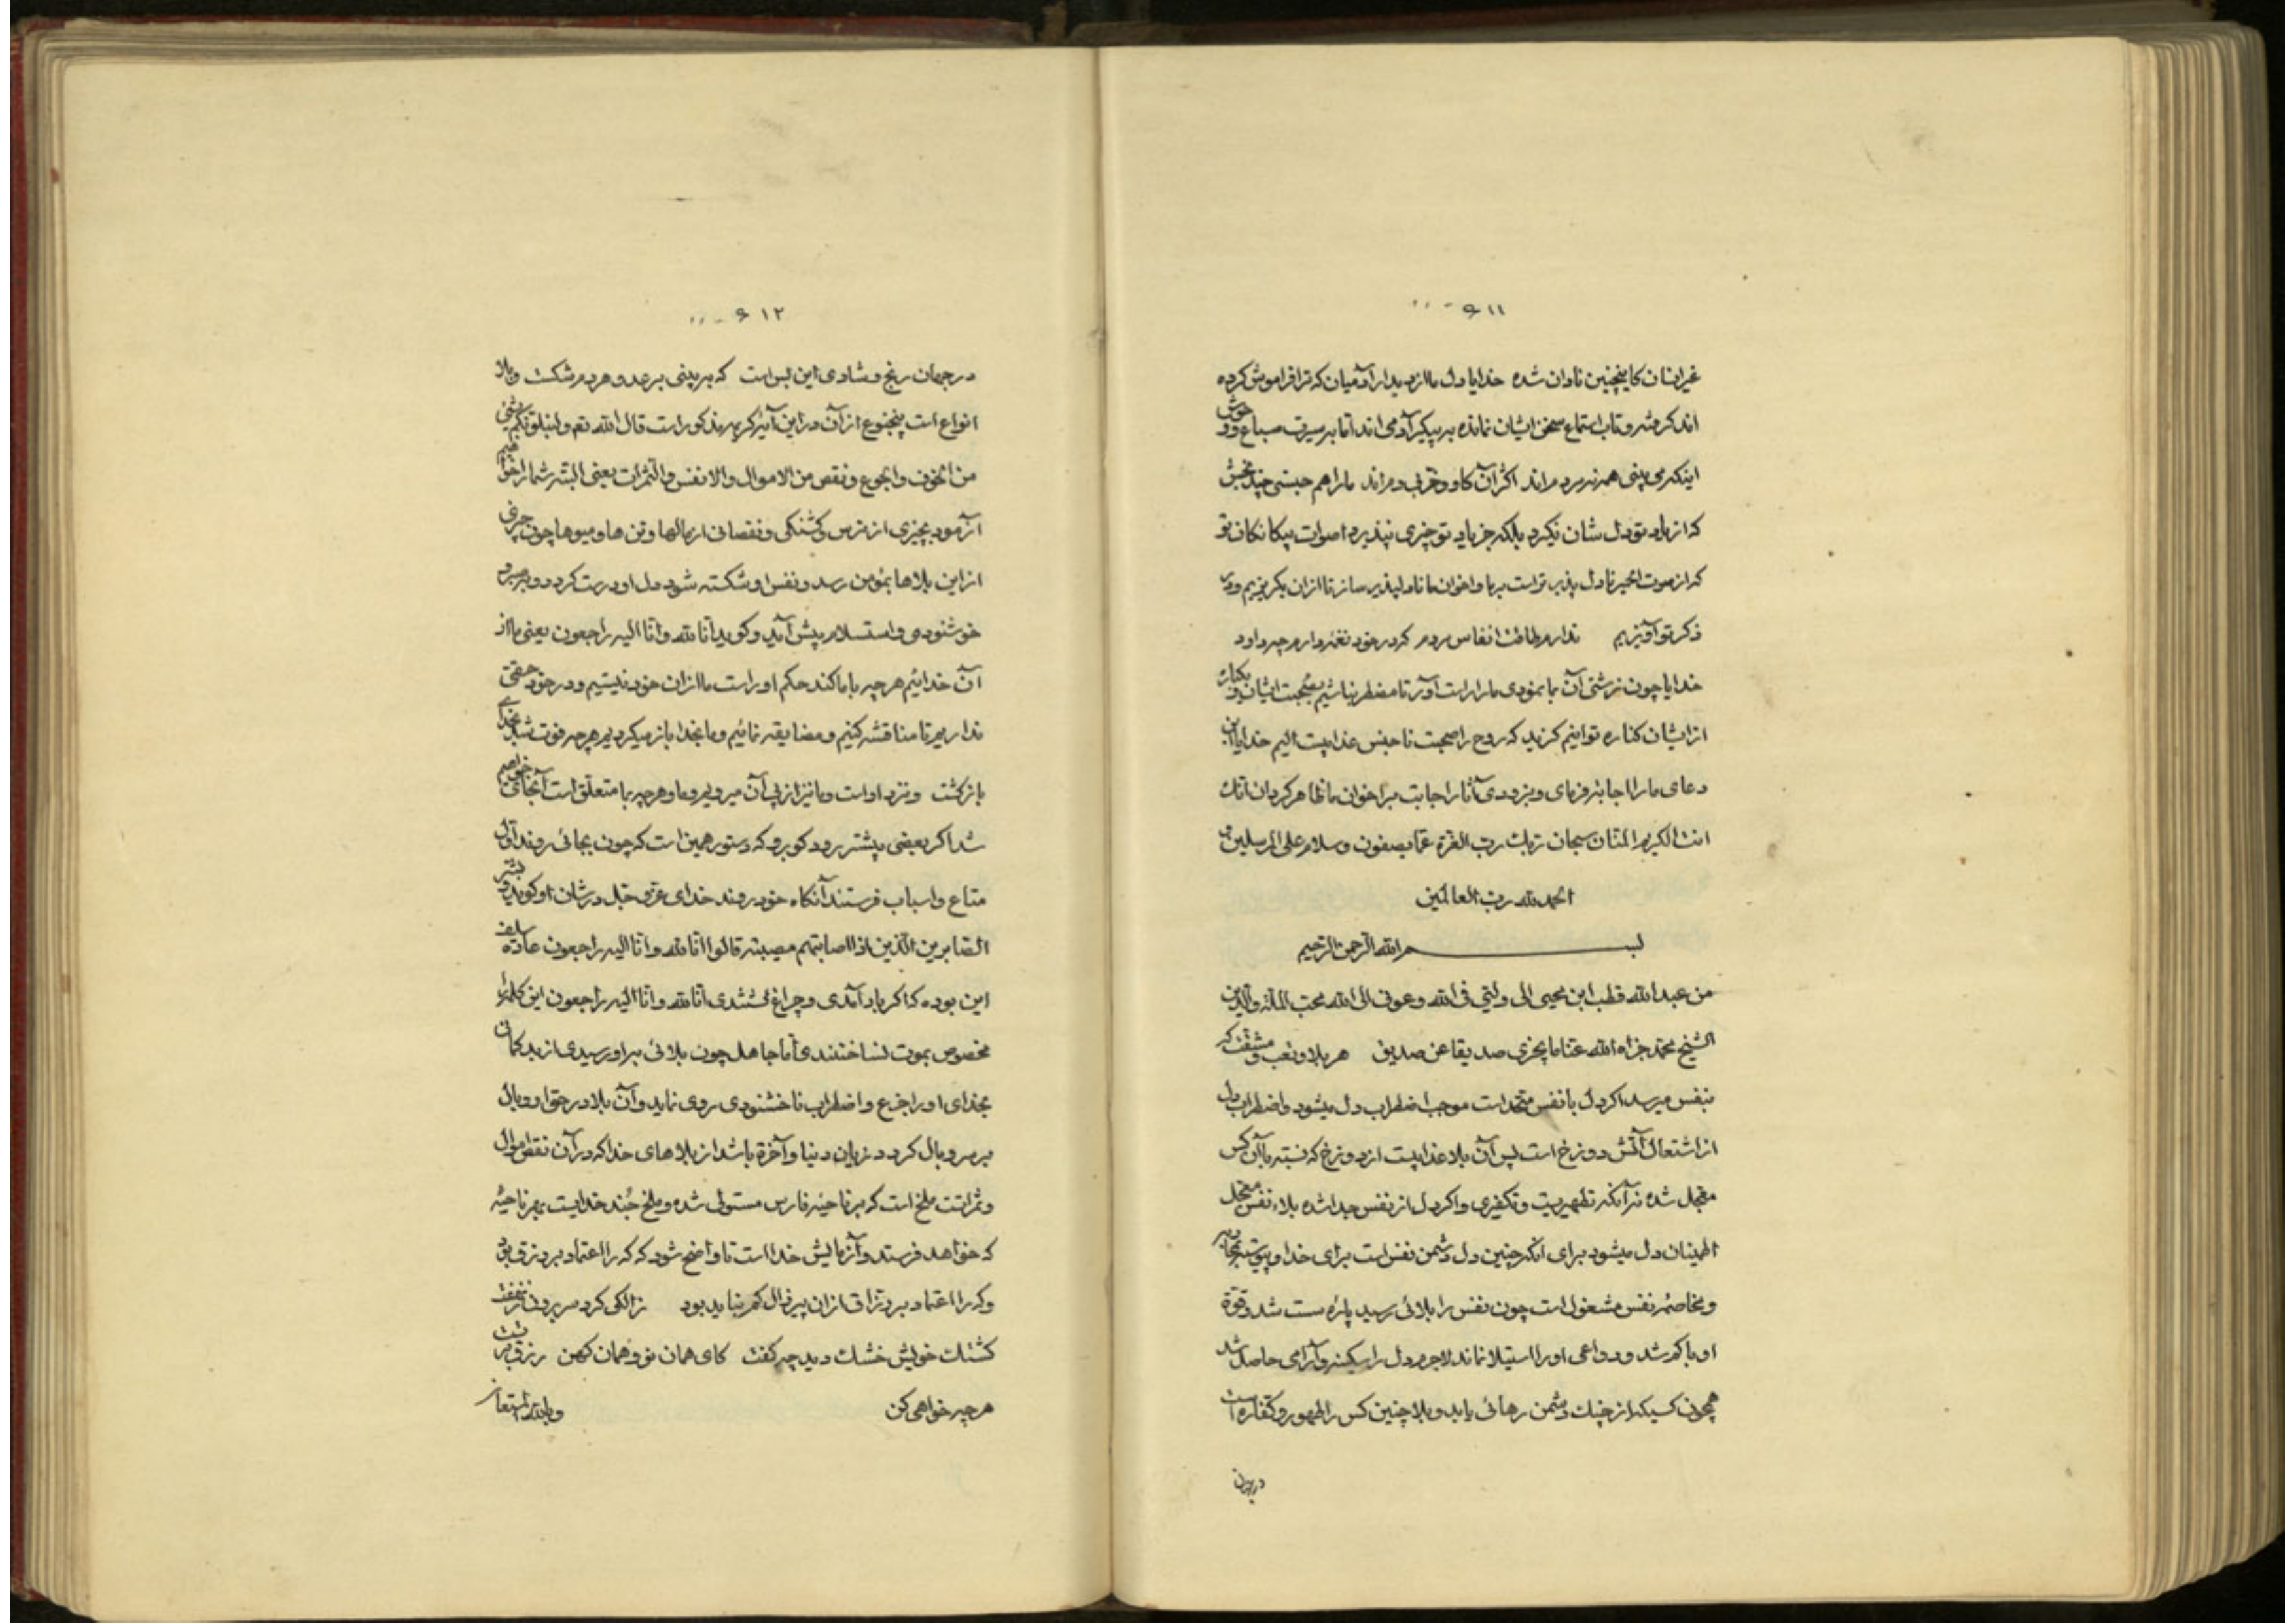 ۶۱۱
غیر انسان کاینچنین نادان شده خدایا دل ما از دیدار آدمیان که ترا فراموش کرده
اند گرفته و تاب استماع سخن ایشان نمانده بر پیکر آدمی اند اما بر سیرت سباع و وحوش
اینکه می بینی همه نه مردم اند اکثر آن گاو و خر بی دم اند ما را هم جنسی چند بخش
که از یاد تو دل شان نگیرد بلکه جز یاد تو چیزی نپذیرد اصوات بیگانگان تو
که از صوت الحمیر نادل پذیر تر است بر ما و اخوان ما نادلپذیر ساز تا از آن بگریزیم و در
ذکر تو آویزیم ندارم طاقت انفاس مردم که در خود نغمه دارم چو داود
خدایا چون زشتی آن بما نمودی ما را راست آور تا مضطر نباشیم بصحبت ایشان و بکناره
از ایشان کناره توانیم گزید که روح را صحبت ناجنس عذابیست الیم خدایا این
دعای ما را اجابة فرمای و بزودی آثار اجابت بر اخوان ما ظاهر گردان انک
انت الکریم المنان سبحان ربک رب العزة عما یصفون و سلام علی المرسلین و
الحمد لله رب العالمین
بسم الله الرحمن الرحیم
من عبد الله قطب ابن محیی الی ولیّی فی الله و عونی الی الله محب الملة والدین
الشیخ محمد جزاه الله عنا ما یجزی صدیقا عن صدیق هر بلا و تعب و مشقت که
بنفس میرسد اگر دل با نفس متحد است موجب اضطراب دل میشود و اضطراب دل
از اشتعال آتش دوزخ است پس آن بلا عذابیست از دوزخ که نسبته با آن کس
معجل شده نه آنکه تطهیریست و تکفیری و اگر دل از نفس جدا شده بلاء نفس محل
اطمینان دل میشود برای آنکه چنین دل دشمن نفس است برای خدا و پیوسته بمحاربه
و مخاصمه نفس مشغول است چون نفس را بلائی رسید پاره سست شد و قوة
او با کم شد و دواعی او را استیلا نماند لاجرم دل را سکینه و آرامی حاصل شد
همچون کسیکه از چنک دشمن رهائی یابد و بلا چنین کس را طهور و کفاره است
در جهان
۶۱۲
در جهان رنج و شادی این بس است که بر بینی بر عدو هر دم شکست و بلا
انواع است پنجنوع از آن در این آیة کریمه مذکور است قال الله تعم و لنبلونکم بشئ
من الخوف و الجوع و نقص من الاموال و الانفس و الثمرات یعنی البته شما را خواهیم
آزمود بچیزی از ترس و گشنکی و نقصانی از مالها و تن ها و میوها چون چیزی
از این بلاها بمؤمن رسد و نفس او شکسته شود دل او درست گردد و
خوشنودی و استسلام پیش آید و گوید انا لله و انا الیه راجعون یعنی ما از
آن خدائیم هرچه با ما کند حکم او راست ما از آن خود نیستیم و در خود حقی
نداریم تا مناقشه کنیم و مضایقه نمائیم و ما بخدا باز میگردیم هرچه فوت شد بخدای
بازگشت و نزد او است و ما نیز از پی آن میرویم و ما و هرچه بما متعلق است آنجای خواهیم
شد اگر بعضی پیشتر رود گو برو که دستور همین است که چون بجائی روند اول
متاع و اسباب فرستند آنگاه خود روند خدای عزّ و جلّ در شان او گوید و بشر
الصابرین الذین اذا اصابتهم مصیبة قالوا انا لله و انا الیه راجعون عادة سلف
این بوده که اگر باد آمدی و چراغ کشتندی انا لله و انا الیه راجعون این کلمه را
مخصوص بموت نساختندی اما جاهل چون بلائی بر او رسیدی از بد گمانی
بخدای او را جزع و اضطراب ناخشنودی روی نماید و آن بلا در حق او وبال
بر سر وبال گردد زیان دنیا و آخرة باشد از بلاهای خدا که در آن نقص اموال
و ثمراتست ملخ است که بر ناحیه فارس مستولی شده و ملخ جند خدایست بهر ناحیه
که خواهد فرستد و آزمایش خدا است تا واضح شود که که را اعتماد بر رزق بود
و که را اعتماد بر رزاق از آن پیر زال کم نباید بود زالکی کرد سر برون ز نهفت
کشتک خویش خشک دید چه گفت کای همان نو و همان کهن رزق بر تست
هرچه خواهی کن و بالله المستعان